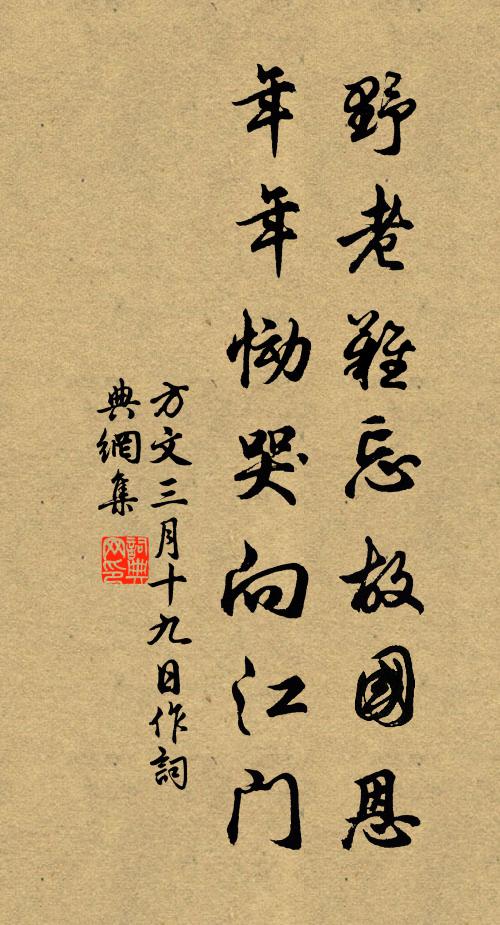 野老難忘故國恩
年年慟哭向江門
方文三月十九日作詞
典網集
詞典
网印